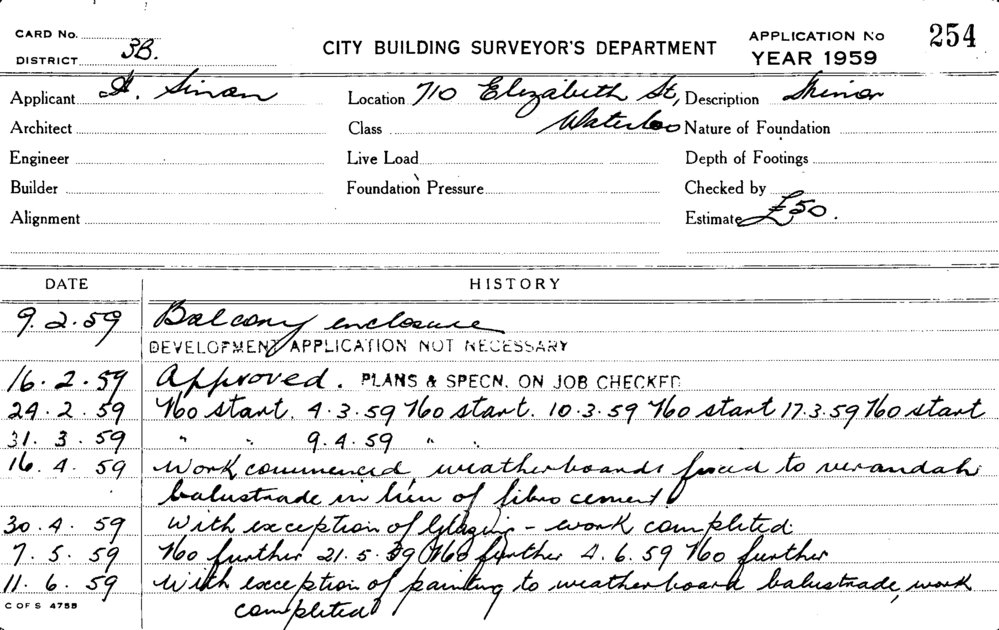 CARD No.
DISTRICT 3B.
CITY BUILDING SURVEYOR'S DEPARTMENT
APPLICATION No 254
YEAR 1959
Applicant A. Sinan Location 710 Elizabeth St, Description Minor
Architect Class Waterloo Nature of Foundation
Engineer Live Load Depth of Footings
Builder Foundation Pressure Checked by
Alignment Estimate £50.
DATE HISTORY
9.2.59 Balcony enclosure
DEVELOPMENT APPLICATION NOT NECESSARY
16.2.59 Approved. PLANS & SPECN. ON JOB CHECKED
24.2.59 No start. 4.3.59 No start. 10.3.59 No start 17.3.59 No start
31.3.59 " " 9.4.59 " "
16.4.59 Work commenced weatherboards fixed to verandah
balustrade in lieu of fibro cement
30.4.59 With exception of Glazing - work completed
7.5.59 No further 21.5.59 No further 4.6.59 No further
11.6.59 With exception of painting to weatherboard balustrade, work
completed
C OF S 4755